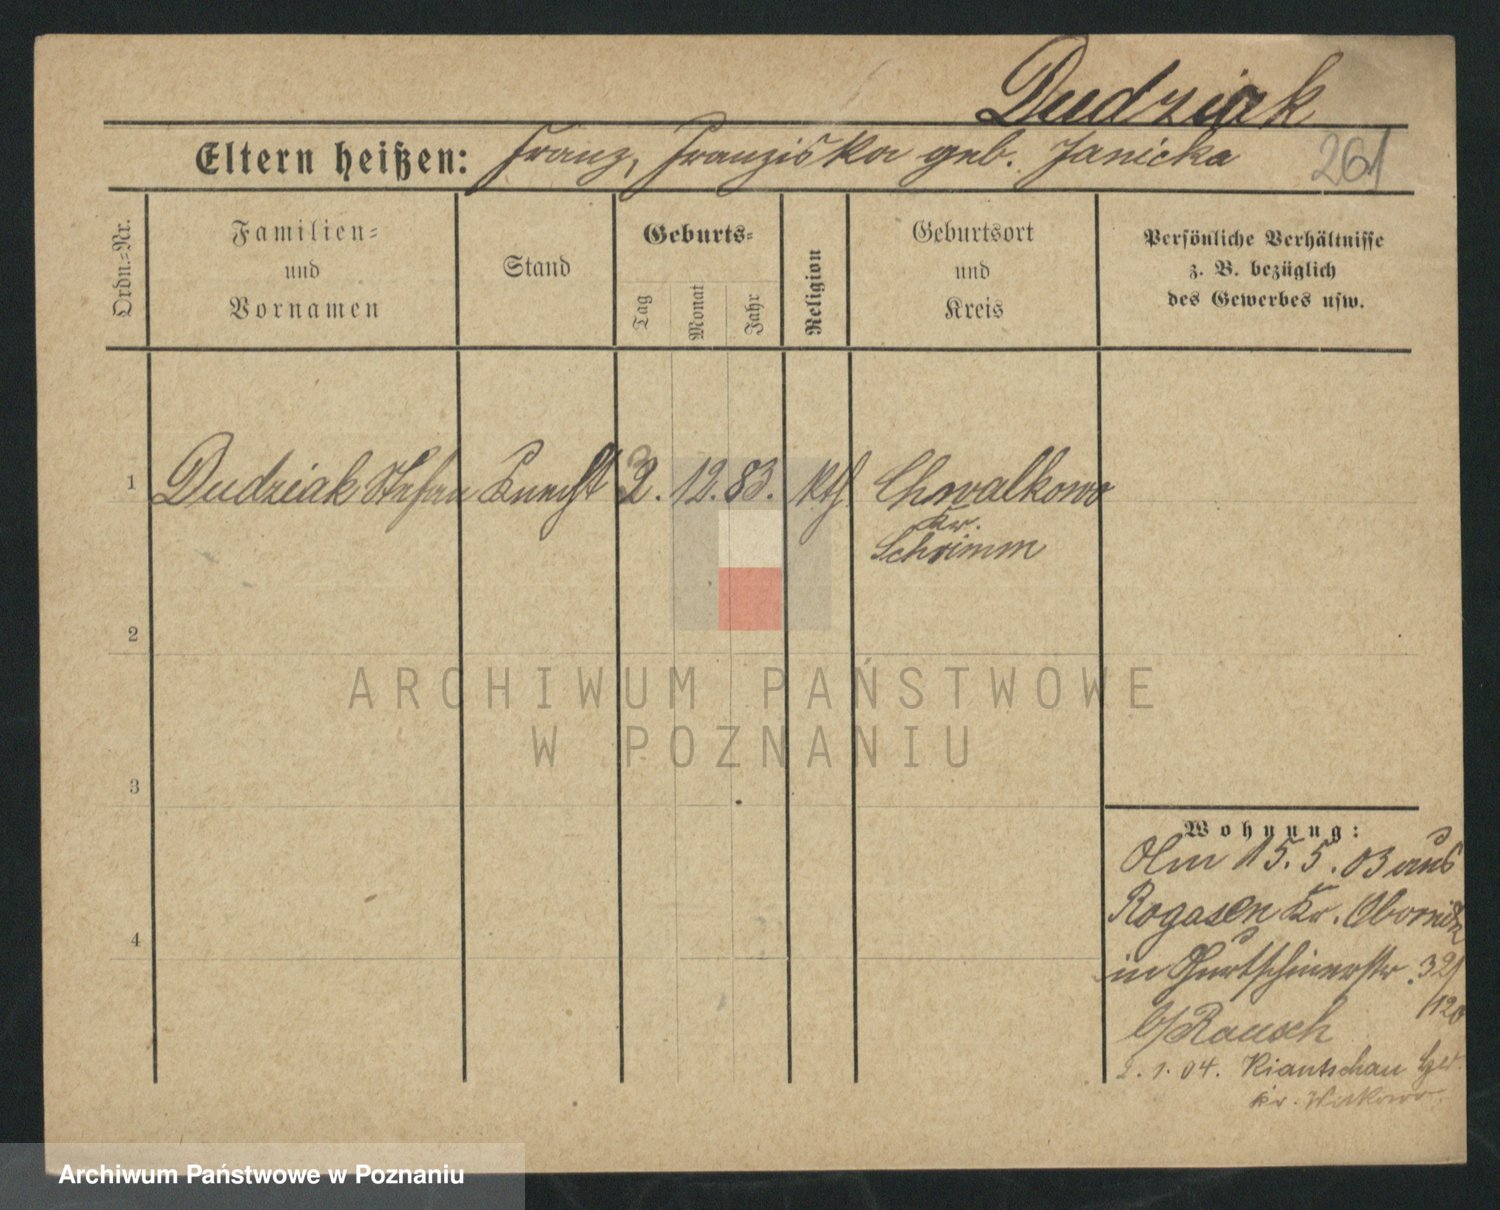 Dudziak
Eltern heißen: Franz, Franziska geb. Janicka
261
Ordn.=Nr.
Familien=
und
Vornamen
Stand
Geburts=
Tag
Monat
Jahr
Religion
Geburtsort
und
Kreis
Persönliche Verhältnisse
z. B. bezüglich
des Gewerbes usw.
1 Dudziak Stefan Knecht 2. 12. 83. kth. Chwalkowo
Kr.
Schrimm
2
ARCHIWUM PAŃSTWOWE
W POZNANIU
3
4
Wohnung:
Am 15.5.03 aus
Rogasen Kr. Obornik
in Gurtschinerstr. 32/
120
b/Rausch
2.1.04. Kiautschau
Kr. Witkowo
Archiwum Państwowe w Poznaniu